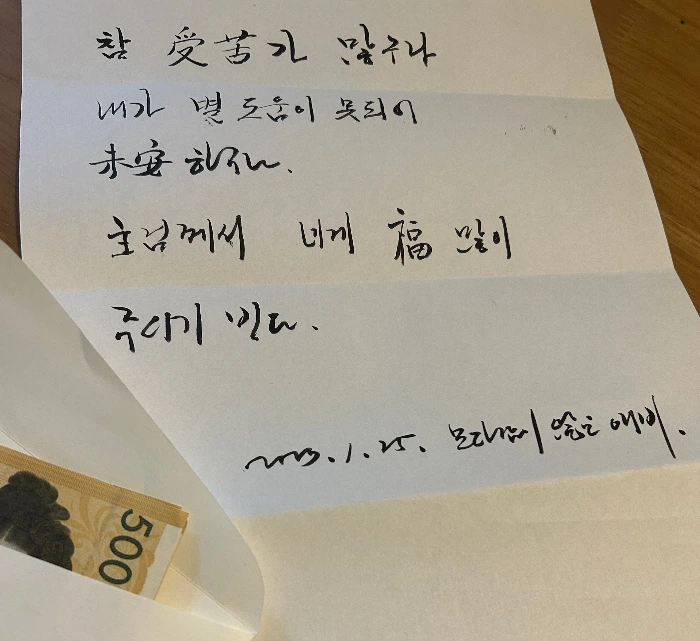 참 受苦가 많구나
내가 별 도움이 못되어
未安 하구나.
主님께서 네게 福 많이
주시기 빈다.
2023.1.25. 애비.
500